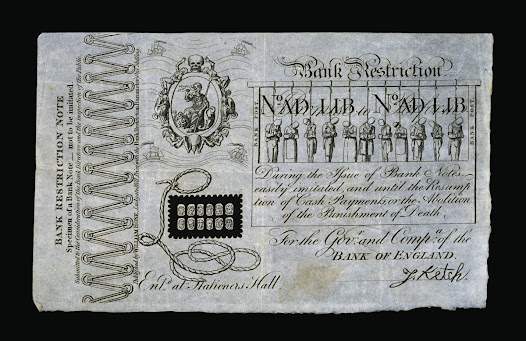 BANK RESTRICTION NOTE
Specimen of a Bank Note—not to be imitated.
Submitted to the Consideration of the Bank Directors and the inspection of the Public.
Bank Restriction
No. AD. LIB. No. AD. LIB.
During the Issue of Bank Notes
easily imitated, and until the Resump
tion of Cash Payments, or the Abolition
of the Punishment of Death,
For the Govr. and Compa. of the
BANK OF ENGLAND.
J. Ketch
Entd. at Stationers Hall.